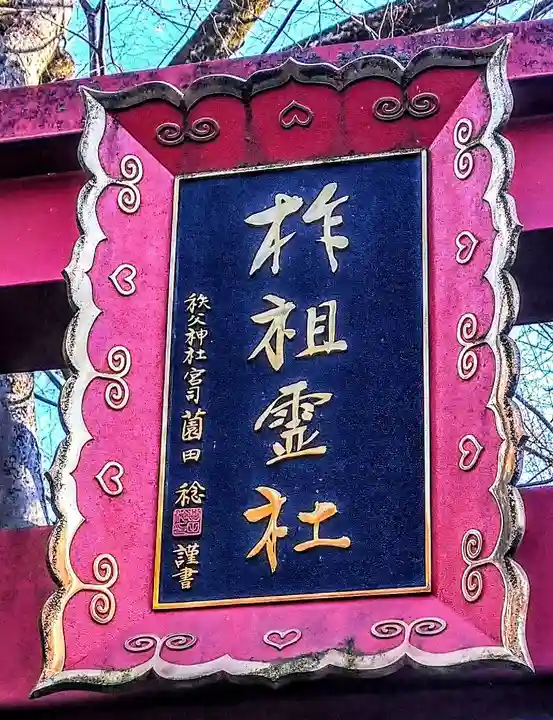 柞祖霊社
秩父神社宮司 薗田 稔 謹書